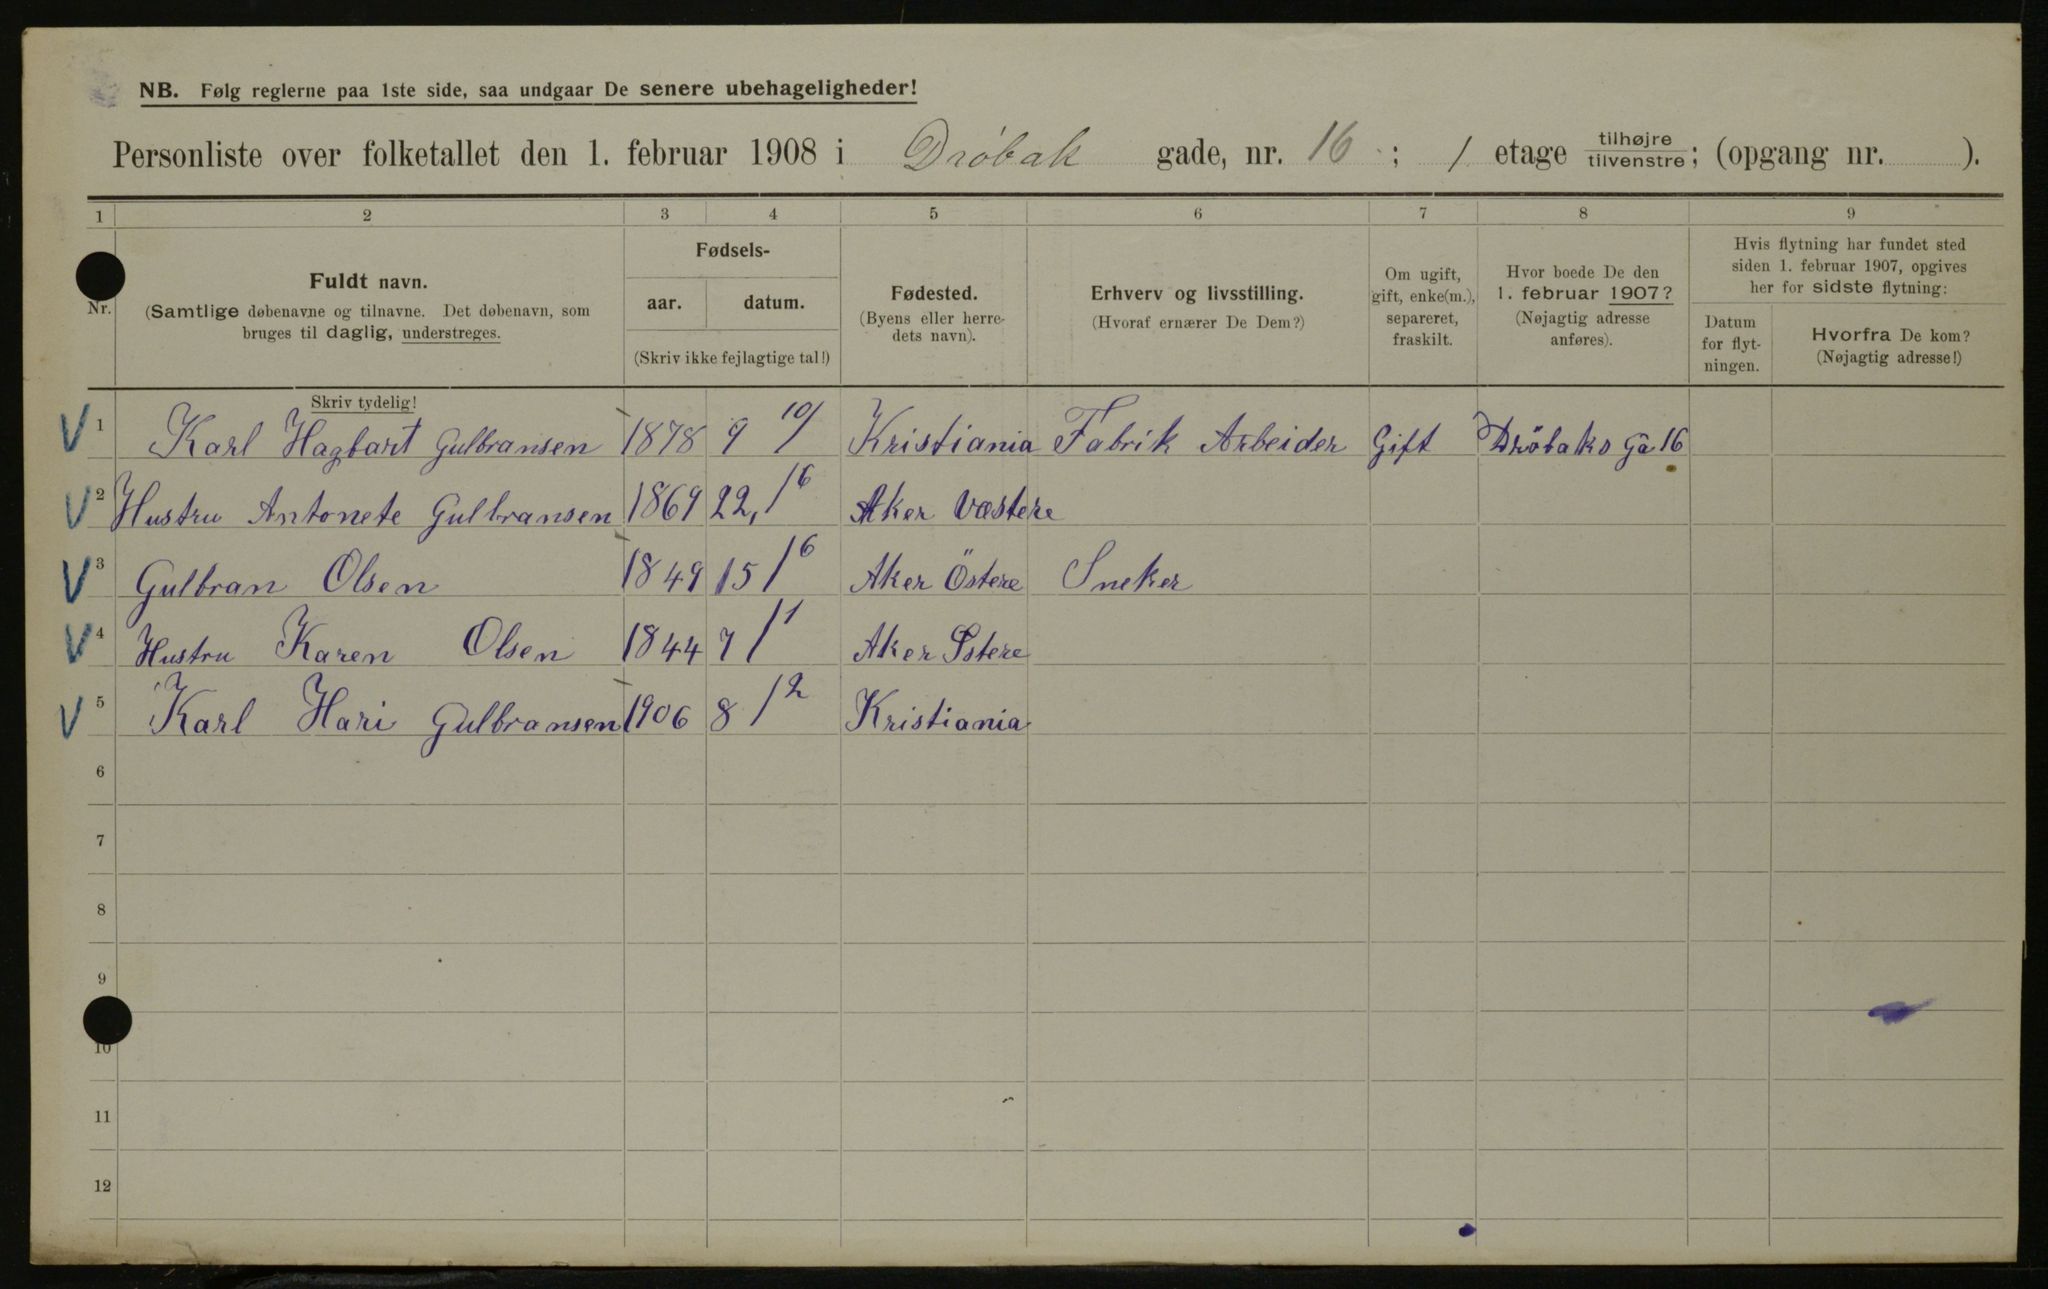 NB. Følg reglerne paa 1ste side, saa undgaar De senere ubehageligheder!
Personliste over folketallet den 1. februar 1908 i Drøbak gade, nr. 16 ; 1 etage tilhøjre tilvenstre; (opgang nr. ).
1 2 3 4 5 6 7 8 9
Nr.
Fuldt navn.
(Samtlige døbenavne og tilnavne. Det døbenavn, som
bruges til daglig, understreges.
Skriv tydelig!
Fødsels-
aar. datum.
(Skriv ikke fejlagtige tal!)
Fødested.
(Byens eller herre-
dets navn).
Erhverv og livsstilling.
(Hvoraf ernærer De Dem?)
Om ugift,
gift, enke(m.),
separeret,
fraskilt.
Hvor boede De den
1. februar 1907?
(Nøjagtig adresse
anføres).
Hvis flytning har fundet sted
siden 1. februar 1907, opgives
her for sidste flytning:
Datum
for flyt-
ningen.
Hvorfra De kom?
(Nøjagtig adresse!)
V 1 Karl Hagbart Gulbransen 1878 9 10/ Kristiania Fabrik Arbeider Gift Dröbaks Ga 16
V 2 Hustru Antonete Gulbransen 1869 22, /6 Aker Væstere
V 3 Gulbran Olsen 1849 15 /6 Aker Östere Sneker
V 4 Hustru Karen Olsen 1844 7 /1 Aker Östere
V 5 Karl Hari Gulbransen 1906 8 /2 Kristiania
6
7
8
9
10
11
12